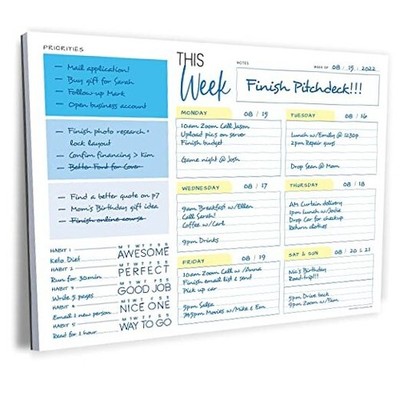 PRIORITIES
Mail application!
Buy gift for Sarah
Follow-up Mark
Open business account
Finish photo research +
rock layout
Confirm financing > Kim
Better Font for Cover
Find a better quote on p7
Mom's Birthday gift idea
Finish online course
HABIT 1
Keto Diet
M T W T F S S
AWESOME
HABIT 2
Run for 30min
M T W T F S S
PERFECT
HABIT 3
Write 5 pages
M T W T F S S
GOOD JOB
HABIT 4
Email 1 new person
M T W T F S S
NICE ONE
HABIT 5
Read for 1 hour
M T W T F S S
WAY TO GO
THIS
Week
NOTES
WEEK OF 08 / 15 / 2022
Finish Pitchdeck!!!
MONDAY 08 / 15
10am Zoom Call Jason
Upload pics on server
Finish budget
Game night @ Josh
TUESDAY 08 / 16
Lunch w/Emily @ 1230p
2pm Repair guys
Drop Sean @ Mom
WEDNESDAY 08 / 17
9am Breakfast w/Ellen
Call Sarah!
Coffee w/Carl
9pm Drinks
THURSDAY 08 / 18
AM Curtain delivery
12pm Lunch w/Jodie
Drop Car for checkup
Return clothes
FRIDAY 08 / 19
10am Zoom Call w/Anna
Finish email list & send
Pick up car
5pm Salsa
745pm Movies w/Mike & Em
SAT & SUN 08 / 20 & 21
Nia's Birthday
Road trip!!
5pm Drive back
9pm Zoom w/Tom